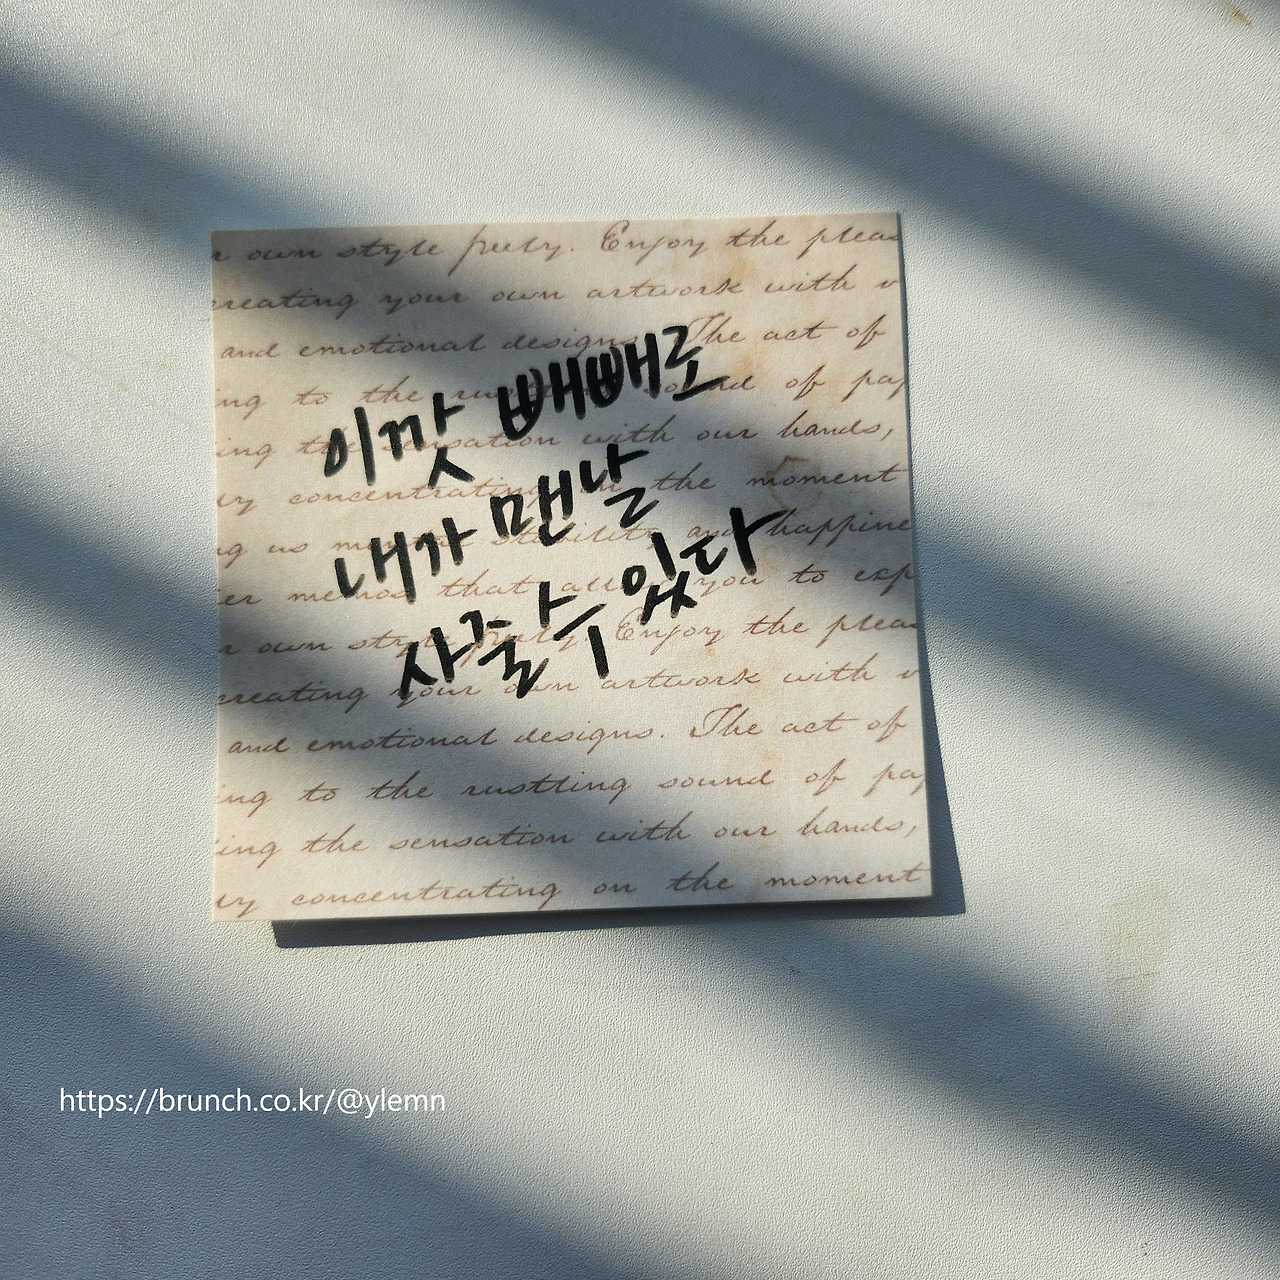 r own style freely. Enjoy the pleas
creating your own artwork with v
and emotional designs. The act of
ing to the rustling sound of pap
ing the sensation with our hands,
ly concentrating on the moment
ng us stability and happine
that you to exp
r own style freely. Enjoy the pleas
creating your own artwork with v
and emotional designs. The act of
ing to the rustling sound of pap
ing the sensation with our hands,
ly concentrating on the moment
이깟 빼빼로
내가 맨날
사줄 수 있다
https://brunch.co.kr/@ylemn